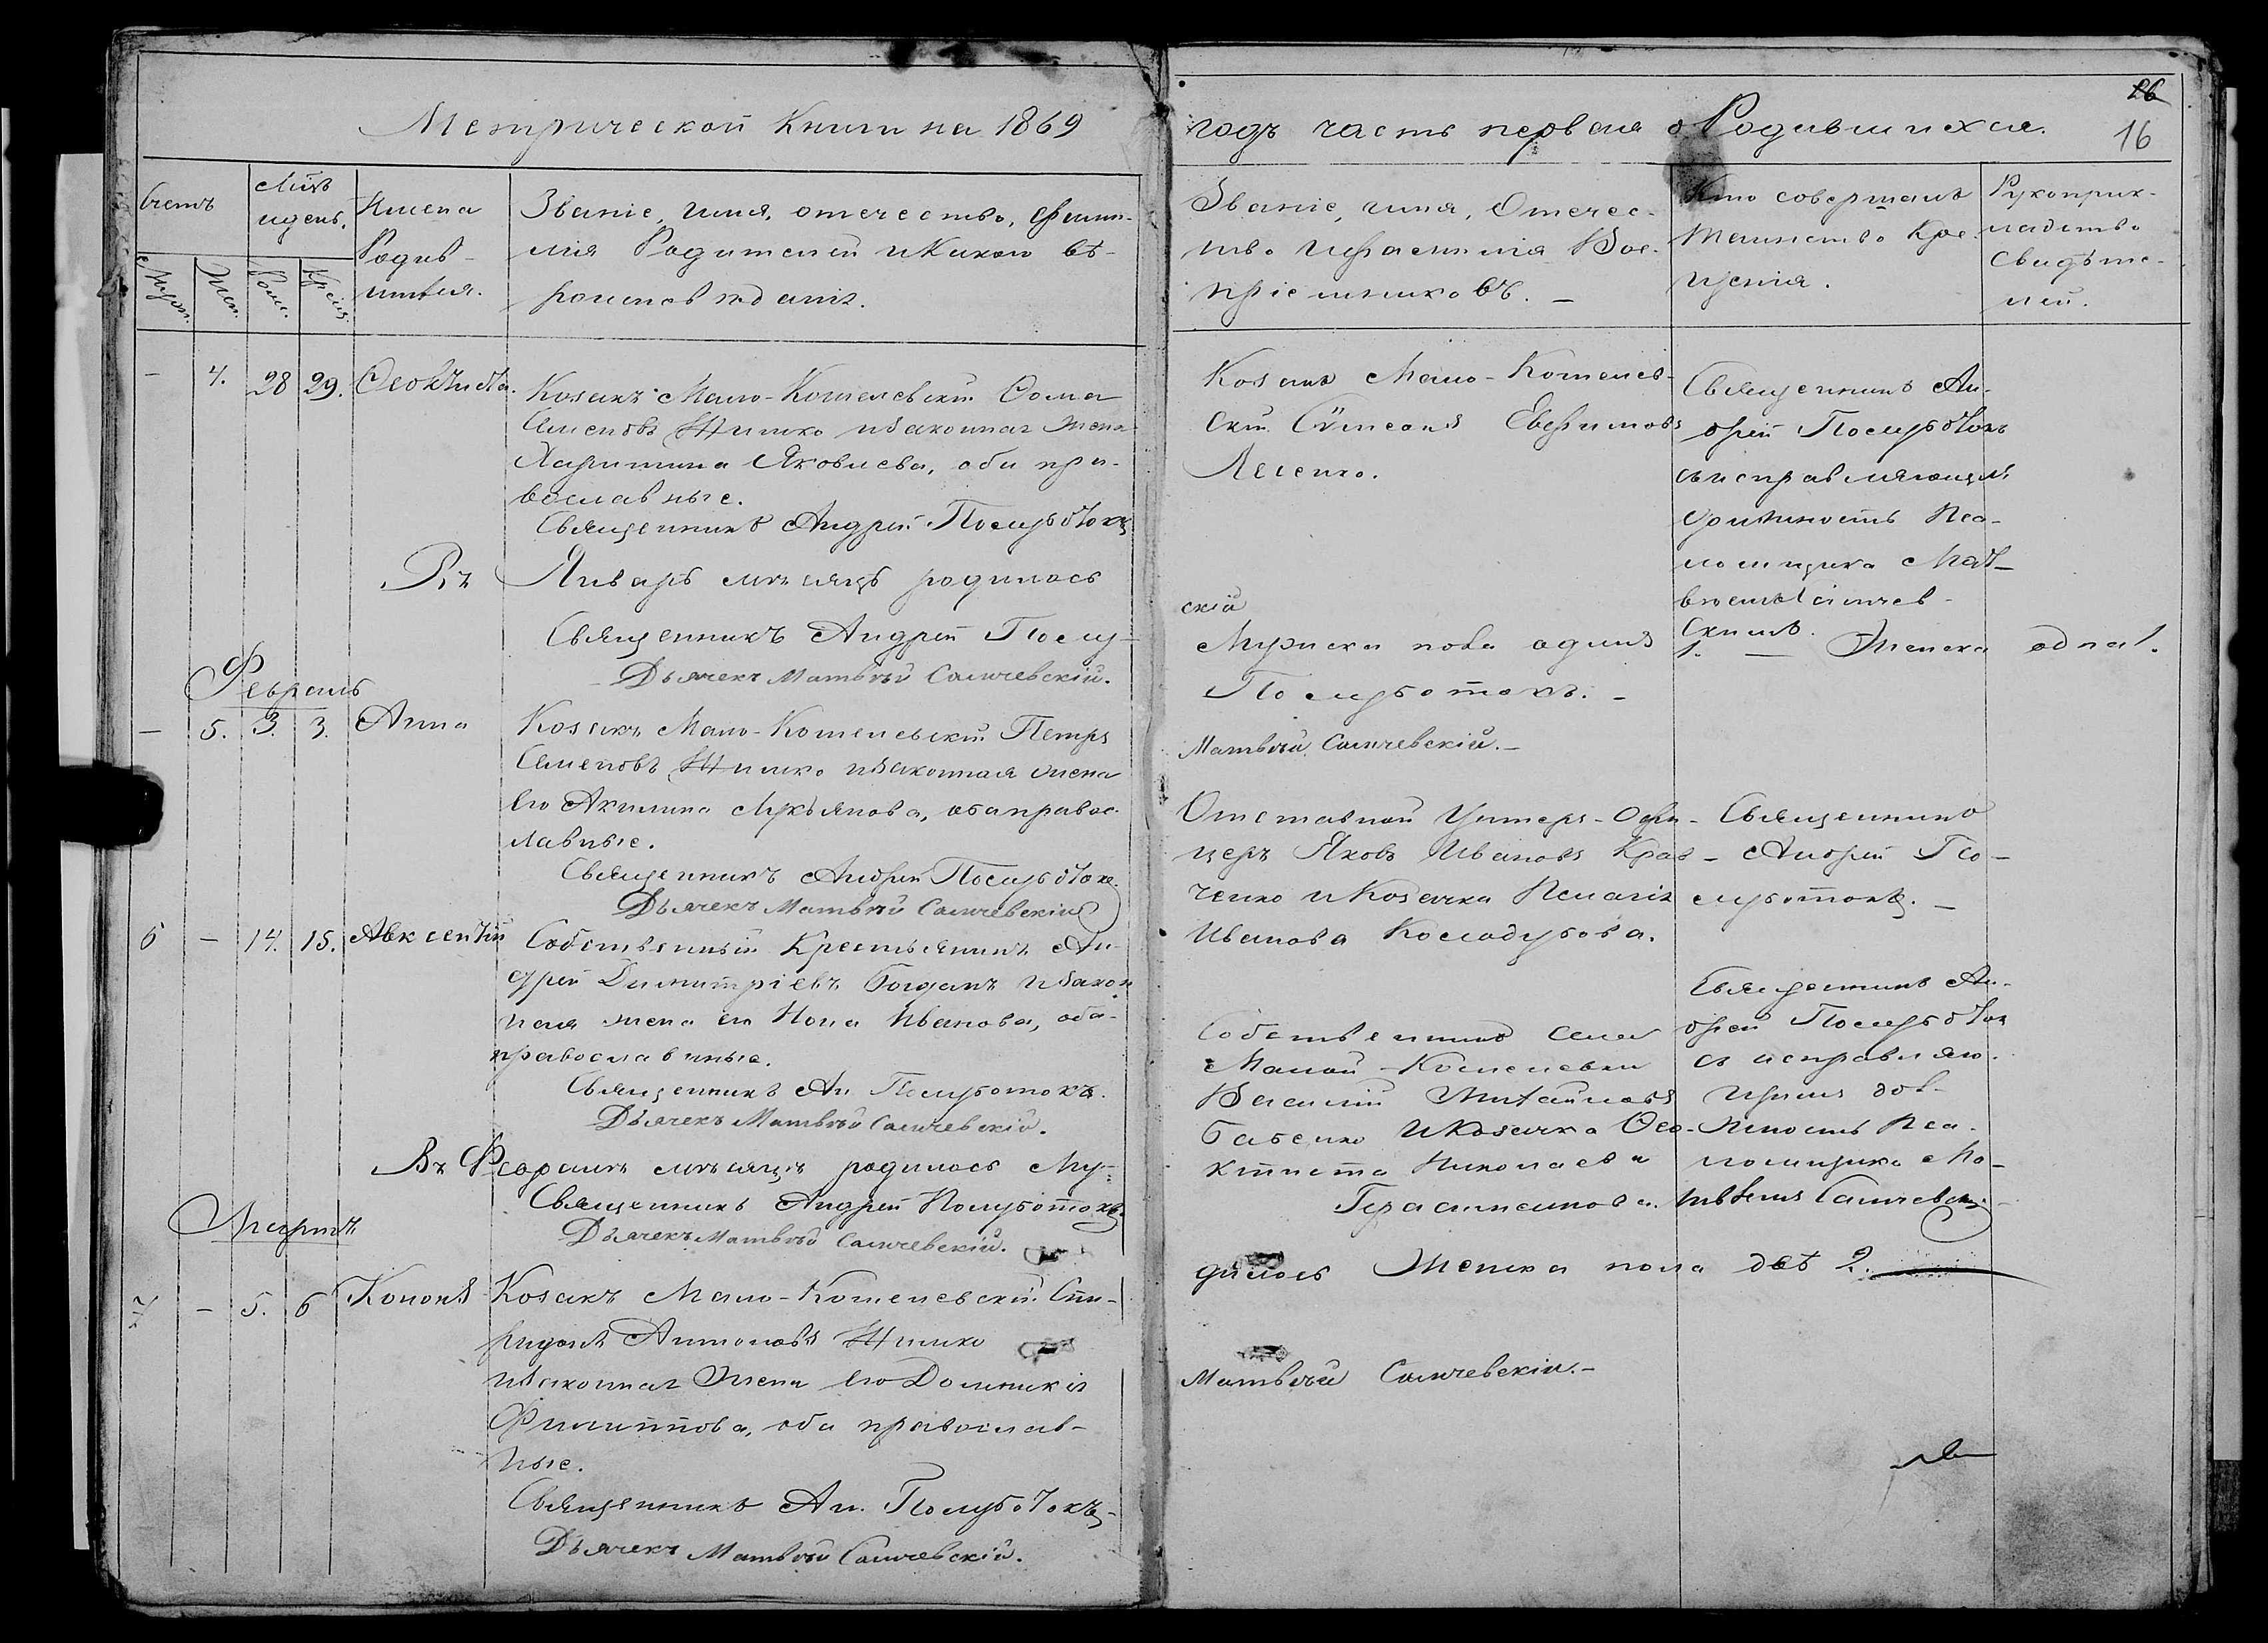 Метрической Книги на 1869
Счетъ
Мѣс. и день.
Имена Родив-шихся.
Званіе, имя, отечество, фами-
лія Родителей и какого вѣ-
роисповѣданія.
Муж.
Жен.
Рожд.
Крещ.
- 4. 28 29. Феоктиста.
Козакъ Мало-Кошелевскій Фома
Семеновъ Шишко и законная жена
Харитина Яковлева, оба пра-
вославные.
Священникъ Андрей Полуботокъ
Въ Январѣ мѣсяцѣ родилось
Священникъ Андрей Полу-
Дьячекъ Матвѣй Самчевскій.
Февраль
- 5. 3. 3. Анна
Козакъ Мало-Кошелевскій Петръ
Семеновъ Шишко и законная жена
его Акилина Лукьянова, оба правос-
лавные.
Священникъ Андрей Полуботокъ.
Дьячекъ Матвѣй Самчевскій
6 - 14. 15. Авксентій
Собственный Крестьянинъ Ан-
дрей Димитріевъ Богданъ и закон
ная жена его Нона Иванова, оба-
православные.
Священникъ Ан. Полуботокъ.
Дьячекъ Матвѣй Самчевскій.
Въ Февралѣ мѣсяцѣ родилось Му-
Священникъ Андрей Полуботокъ.
Дьячекъ Матвѣй Самчевскій.
Мартъ
7 - 5. 6 Кононъ
Козакъ Мало-Кошелевскій Спи-
ридонъ Антоновъ Шишко
и законная жена его Домникія
Филиппова, оба православ-
ные.
Священникъ Ан. Полуботокъ-
Дьячекъ Матвѣй Самчевскій.
годъ часть первая о Родившихся.
26
16
Званіе, имя, Отечес-
тво и фамилія Вос-
пріемниковъ. -
Кто совершалъ
Таинство Кре-
щенія.
Рукоприк-
ладство
Свидѣте-
лей.
Козакъ Мало-Кошелев-
скій Сѵмеонъ Евфимовъ
Лесенко.
Священникъ Ан-
дрей Полуботокъ
съ исправляющимъ
должность Пса-
ломщика Мат-
вѣемъ Самчев-
скимъ.
скій
Мужеска пола одинъ 1. — Женска одна 1.
Полуботокъ. -
Матвѣй Самчевскій.-
Отставной Унтеръ-Офи-
церъ Яковъ Ивановъ Крав-
ченко и Козачка Пелагія
Иванова Колодубова.
Священникъ
Андрей По-
луботокъ. -
Собственникъ села
Малой-Кошелевки
Василій Михайловъ
Бабенко и Козачка Фео-
ктиста Николаева
Герасименкова.
Священникъ Ан-
дрей Полуботок
съ исправляю-
щимъ дол-
жность Пса-
ломщика Ма-
твѣемъ Самчевским-
дилось Женска пола двѣ 2.
Матвѣй Самчевскій.-